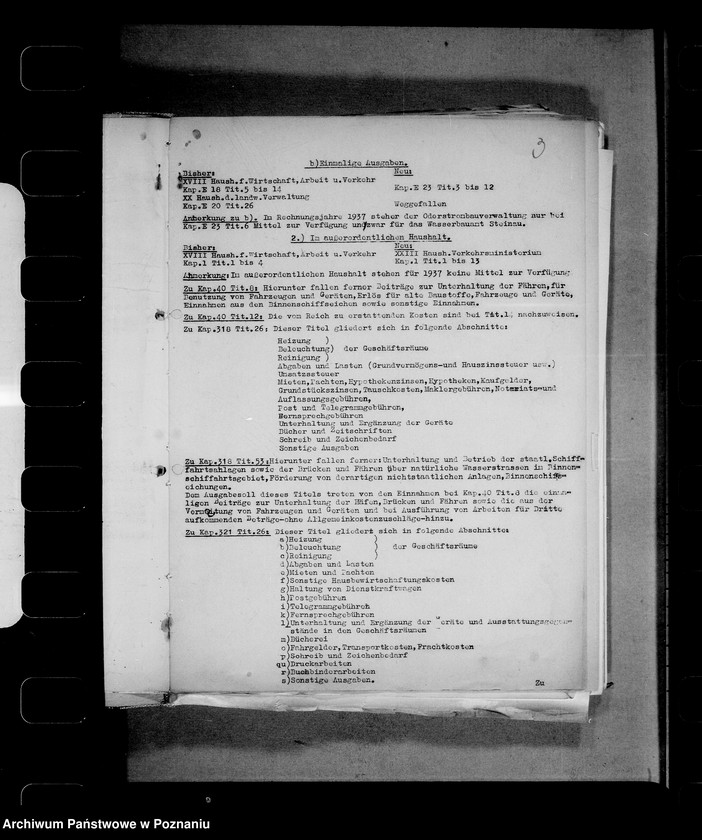 3
b)Einmalige Ausgaben.
Bisher: Neu:
XVIII Haush.f.Wirtschaft,Arbeit u.Verkehr
Kap.E 18 Tit.5 bis 14 Kap.E 23 Tit.3 bis 12
XX Haush.d.landw.Verwaltung
Kap.E 20 Tit.26 Weggefallen
Anmerkung zu b). Im Rechnungsjahre 1937 stehen der Oderstrombauverwaltung nur bei
Kap.E 23 Tit.6 Mittel zur Verfügung und zwar für das Wasserbauamt Steinau.
2.) Im außerordentlichen Haushalt.
Bisher: Neu:
XVIII Haush.f.Wirtschaft,Arbeit u.Verkehr XXIII Haush.Verkehrsministerium
Kap.1 Tit.1 bis 4 Kap.1 Tit.1 bis 13
Anmerkung: Im außerordentlichen Haushalt stehen für 1937 keine Mittel zur Verfügung
Zu Kap.40 Tit.8: Hierunter fallen ferner Beiträge zur Unterhaltung der Fähren,für
Benutzung von Fahrzeugen und Geräten,Erlös für alte Baustoffe,Fahrzeuge und Geräte,
Einnahmen aus den Binnenschiffseichen sowie sonstige Einnahmen.
Zu Kap.40 Tit.12: Die vom Reich zu erstattenden Kosten sind bei Tit. nachzuweisen.
Zu Kap.318 Tit.26: Dieser Titel gliedert sich in folgende Abschnitte:
Heizung )
Beleuchtung) der Geschäftsräume
Reinigung )
Abgaben und Lasten (Grundvermögens-und Hauszinssteuer usw.)
Umsatzsteuer
Mieten,Pachten,Hypothekenzinsen,Hypotheken,Kaufgelder,
Grundstückszinsen,Tauschkosten,Maklergebühren,Notariats-und
Auflassungsgebühren,
Post und Telegrammgebühren,
Fernsprechgebühren
Unterhaltung und Ergänzung der Geräte
Bücher und Zeitschriften
Schreib und Zeichenbedarf
Sonstige Ausgaben
Zu Kap.318 Tit.53: Hierunter fallen ferner:Unterhaltung und Betrieb der staatl.Schiff-
fahrtsahlagen sowie der Brücken und Fähren über natürliche Wasserstrassen im Binnen-
schiffahrtsgebiet,Förderung von derartigen nichtstaatlichen Anlagen,Binnenschiffs-
eichungen.
Dem Ausgabesoll dieses Titels treten von den Einnahmen bei Kap.40 Tit.8 die einma-
ligen Beiträge zur Unterhaltung der Häfen,Brücken und Fähren sowie die aus der
Vermietung von Fahrzeugen und Geräten und bei Ausführung von Arbeiten für Dritte
aufkommenden Beträge-ohne Allgemeinkostenzuschläge-hinzu.
Zu Kap.321 Tit.26: Dieser Titel gliedert sich in folgende Abschnitte:
a)Heizung )
b)Beleuchtung ) der Geschäftsräume
c)Reinigung )
d)Abgaben und Lasten
e)Mieten und Pachten
f)Sonstige Hausbewirtschaftungskosten
g)Haltung von Dienstkraftwagen
h)Postgebühren
i)Telegrammgebühren
k)Fernsprechgebühren
l)Unterhaltung und Ergänzung der Geräte und Ausstattungsgegen-
stände in den Geschäftsräumen
m)Bücherei
o)Fahrgelder,Transportkosten,Frachtkosten
p)Schreib und Zeichenbedarf
qu)Druckarbeiten
r)Buchbinderarbeiten
s)Sonstige Ausgaben.
Zu
Archiwum Państwowe w Poznaniu